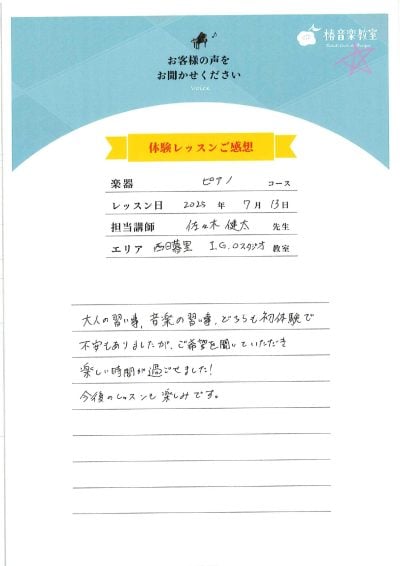 椿音楽教室
お客様の声を
お聞かせください
Voice
体験レッスンご感想
楽器 ピアノ コース
レッスン日 2025年 7月 13日
担当講師 佐々木 健太 先生
エリア 西日暮里 I.G.Oスタジオ 教室
大人の習い事、音楽の習い事、どちらも初体験で
不安もありましたが、ご希望を聞いていただき
楽しい時間が過ごせました!
今後のレッスンも楽しみです。